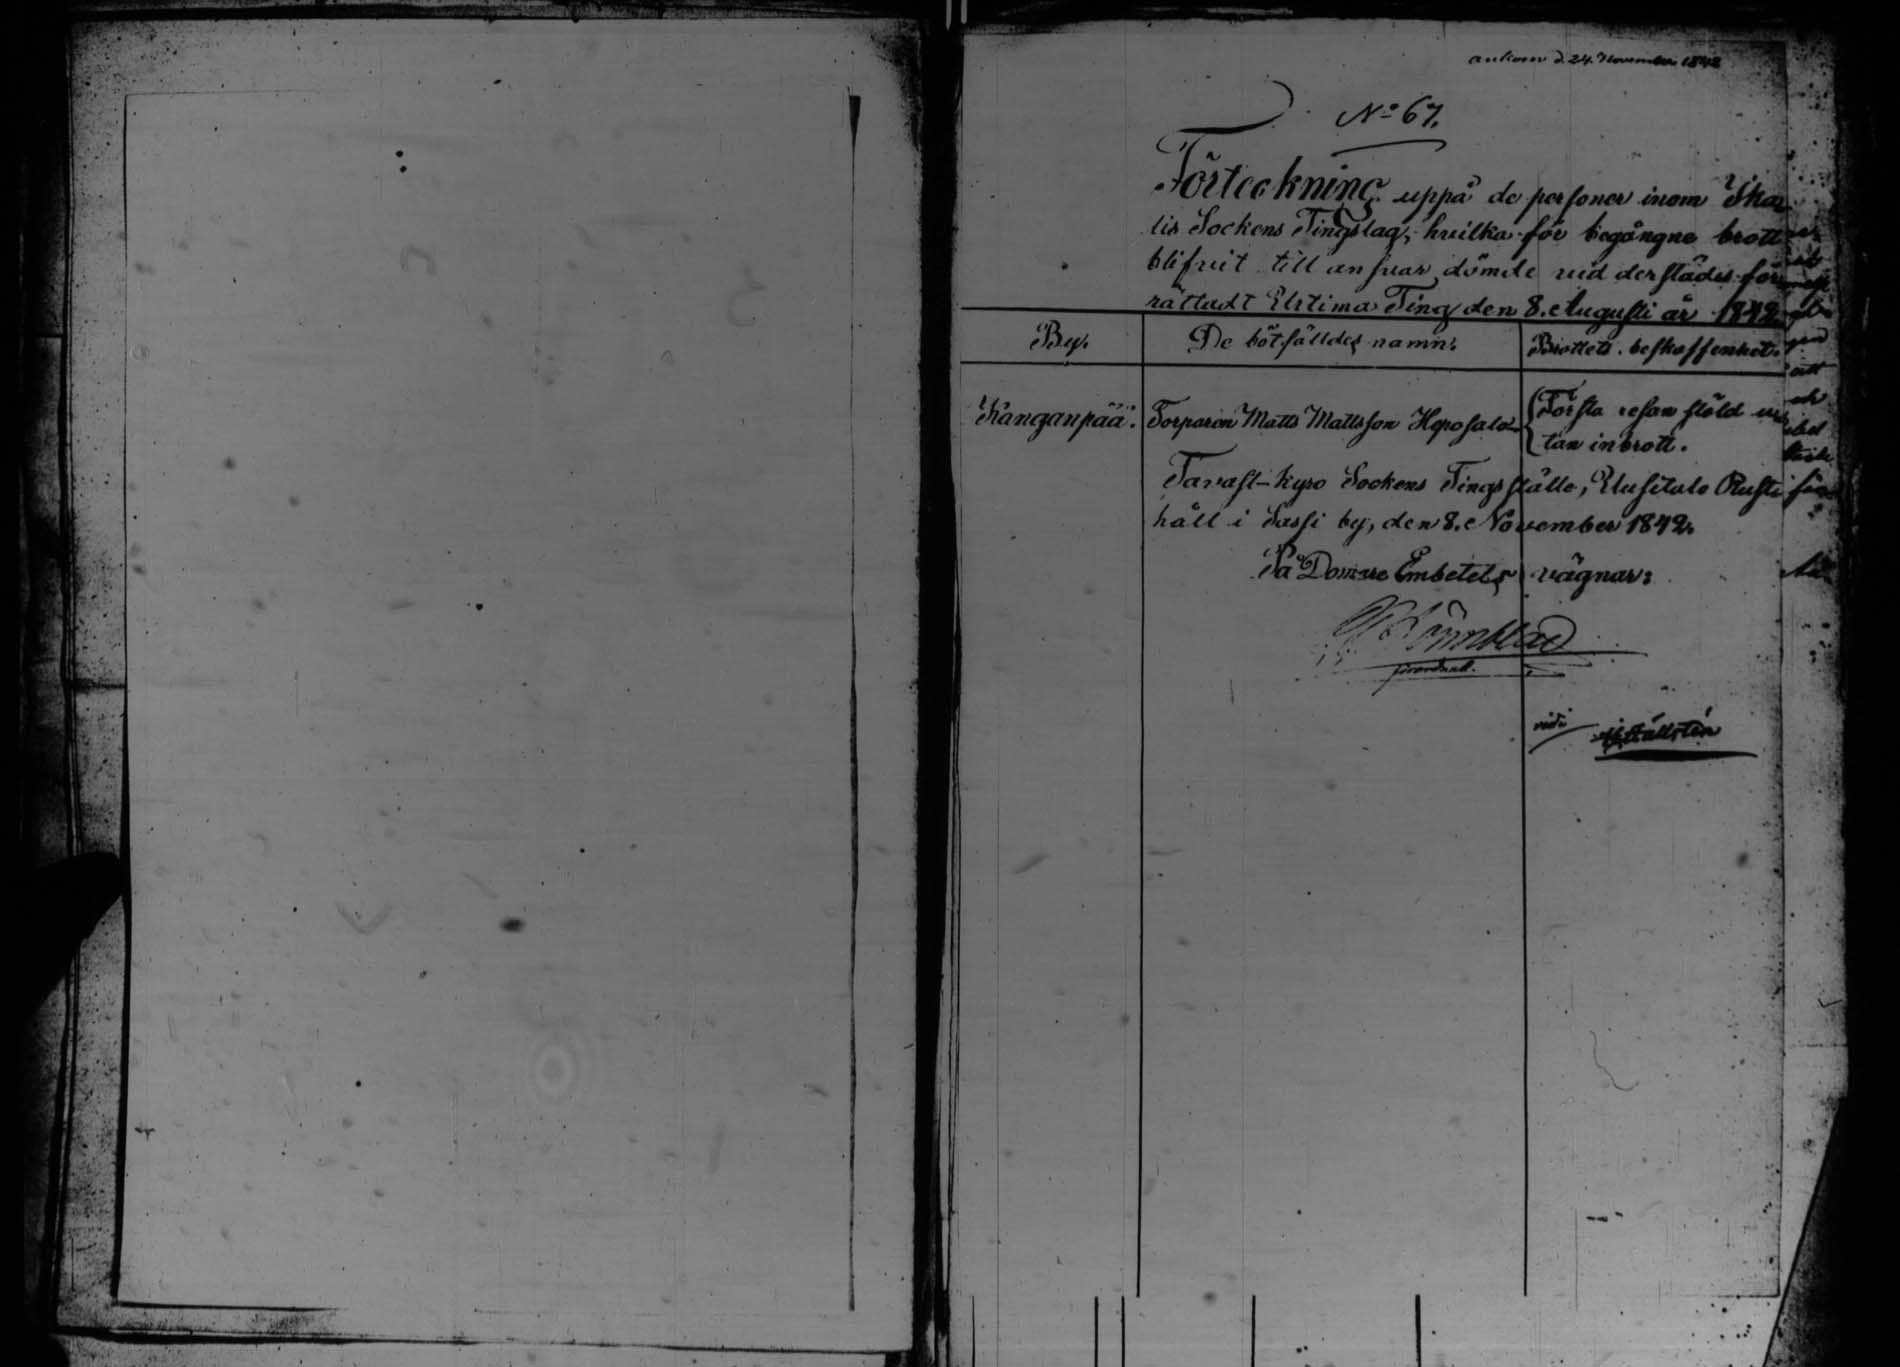 ankom d. 24. November 1842
No 67.
Förteckning uppå de personer inom Ika
lis Sockens Tingslag, hvilka för begångne brott
blifvit till ansvar dömde vid derstädes för
rättadt Urtima Ting den 8. Augusti år 1842
By. De bötfälldes namn. Brottets beskaffenhet.
Kanganpää. Torparen Matts Mattsson Heposalo Första resan stöld u
tan inbrott.
Tavast-kyro Sockens Tingsställe, Uusitalo Rust
håll i Sassi by, den 8. November 1842.
På Domare Embetets vägnar:
förordnad.
vidi